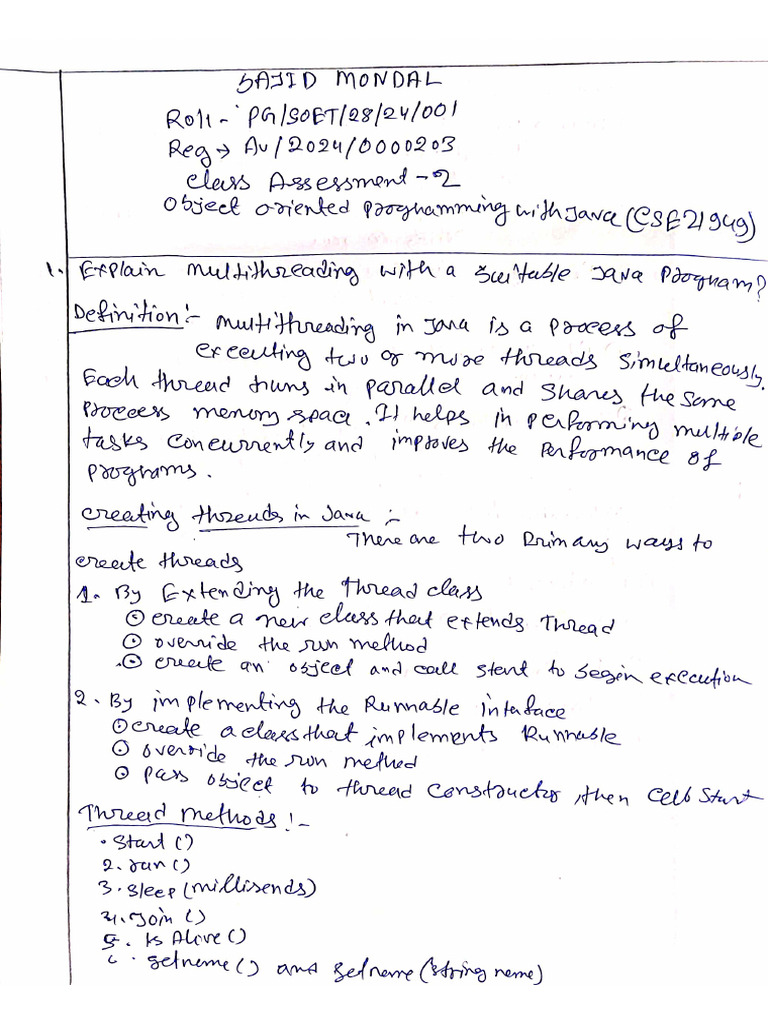 SAJID MONDAL
Roll - PG/SOET/28/24/001
Reg → AU/2024/0000203
class Assessment - 2
Object oriented programming with Java (CSE21949)
1. Explain multithreading with a suitable Java program?
Definition :- multithreading in Java is a process of
executing two or more threads simultaneously.
Each thread runs in parallel and shares the same
process memory space. It helps in performing multiple
tasks concurrently and improves the performance of
programs.
creating threads in Java :-
There are two primary ways to
create threads
1. By Extending the Thread class
⊙ create a new class that extends Thread
⊙ override the run method
⊙ create an object and call start to begin execution
2. By implementing the Runnable interface
⊙ create a class that implements Runnable
⊙ override the run method
⊙ pass object to thread constructor, then call start
Thread methods :-
• start ()
2. run ()
3. sleep (millisends)
4. Join ()
5. Is Alive ()
6. getname () and setname (string name)